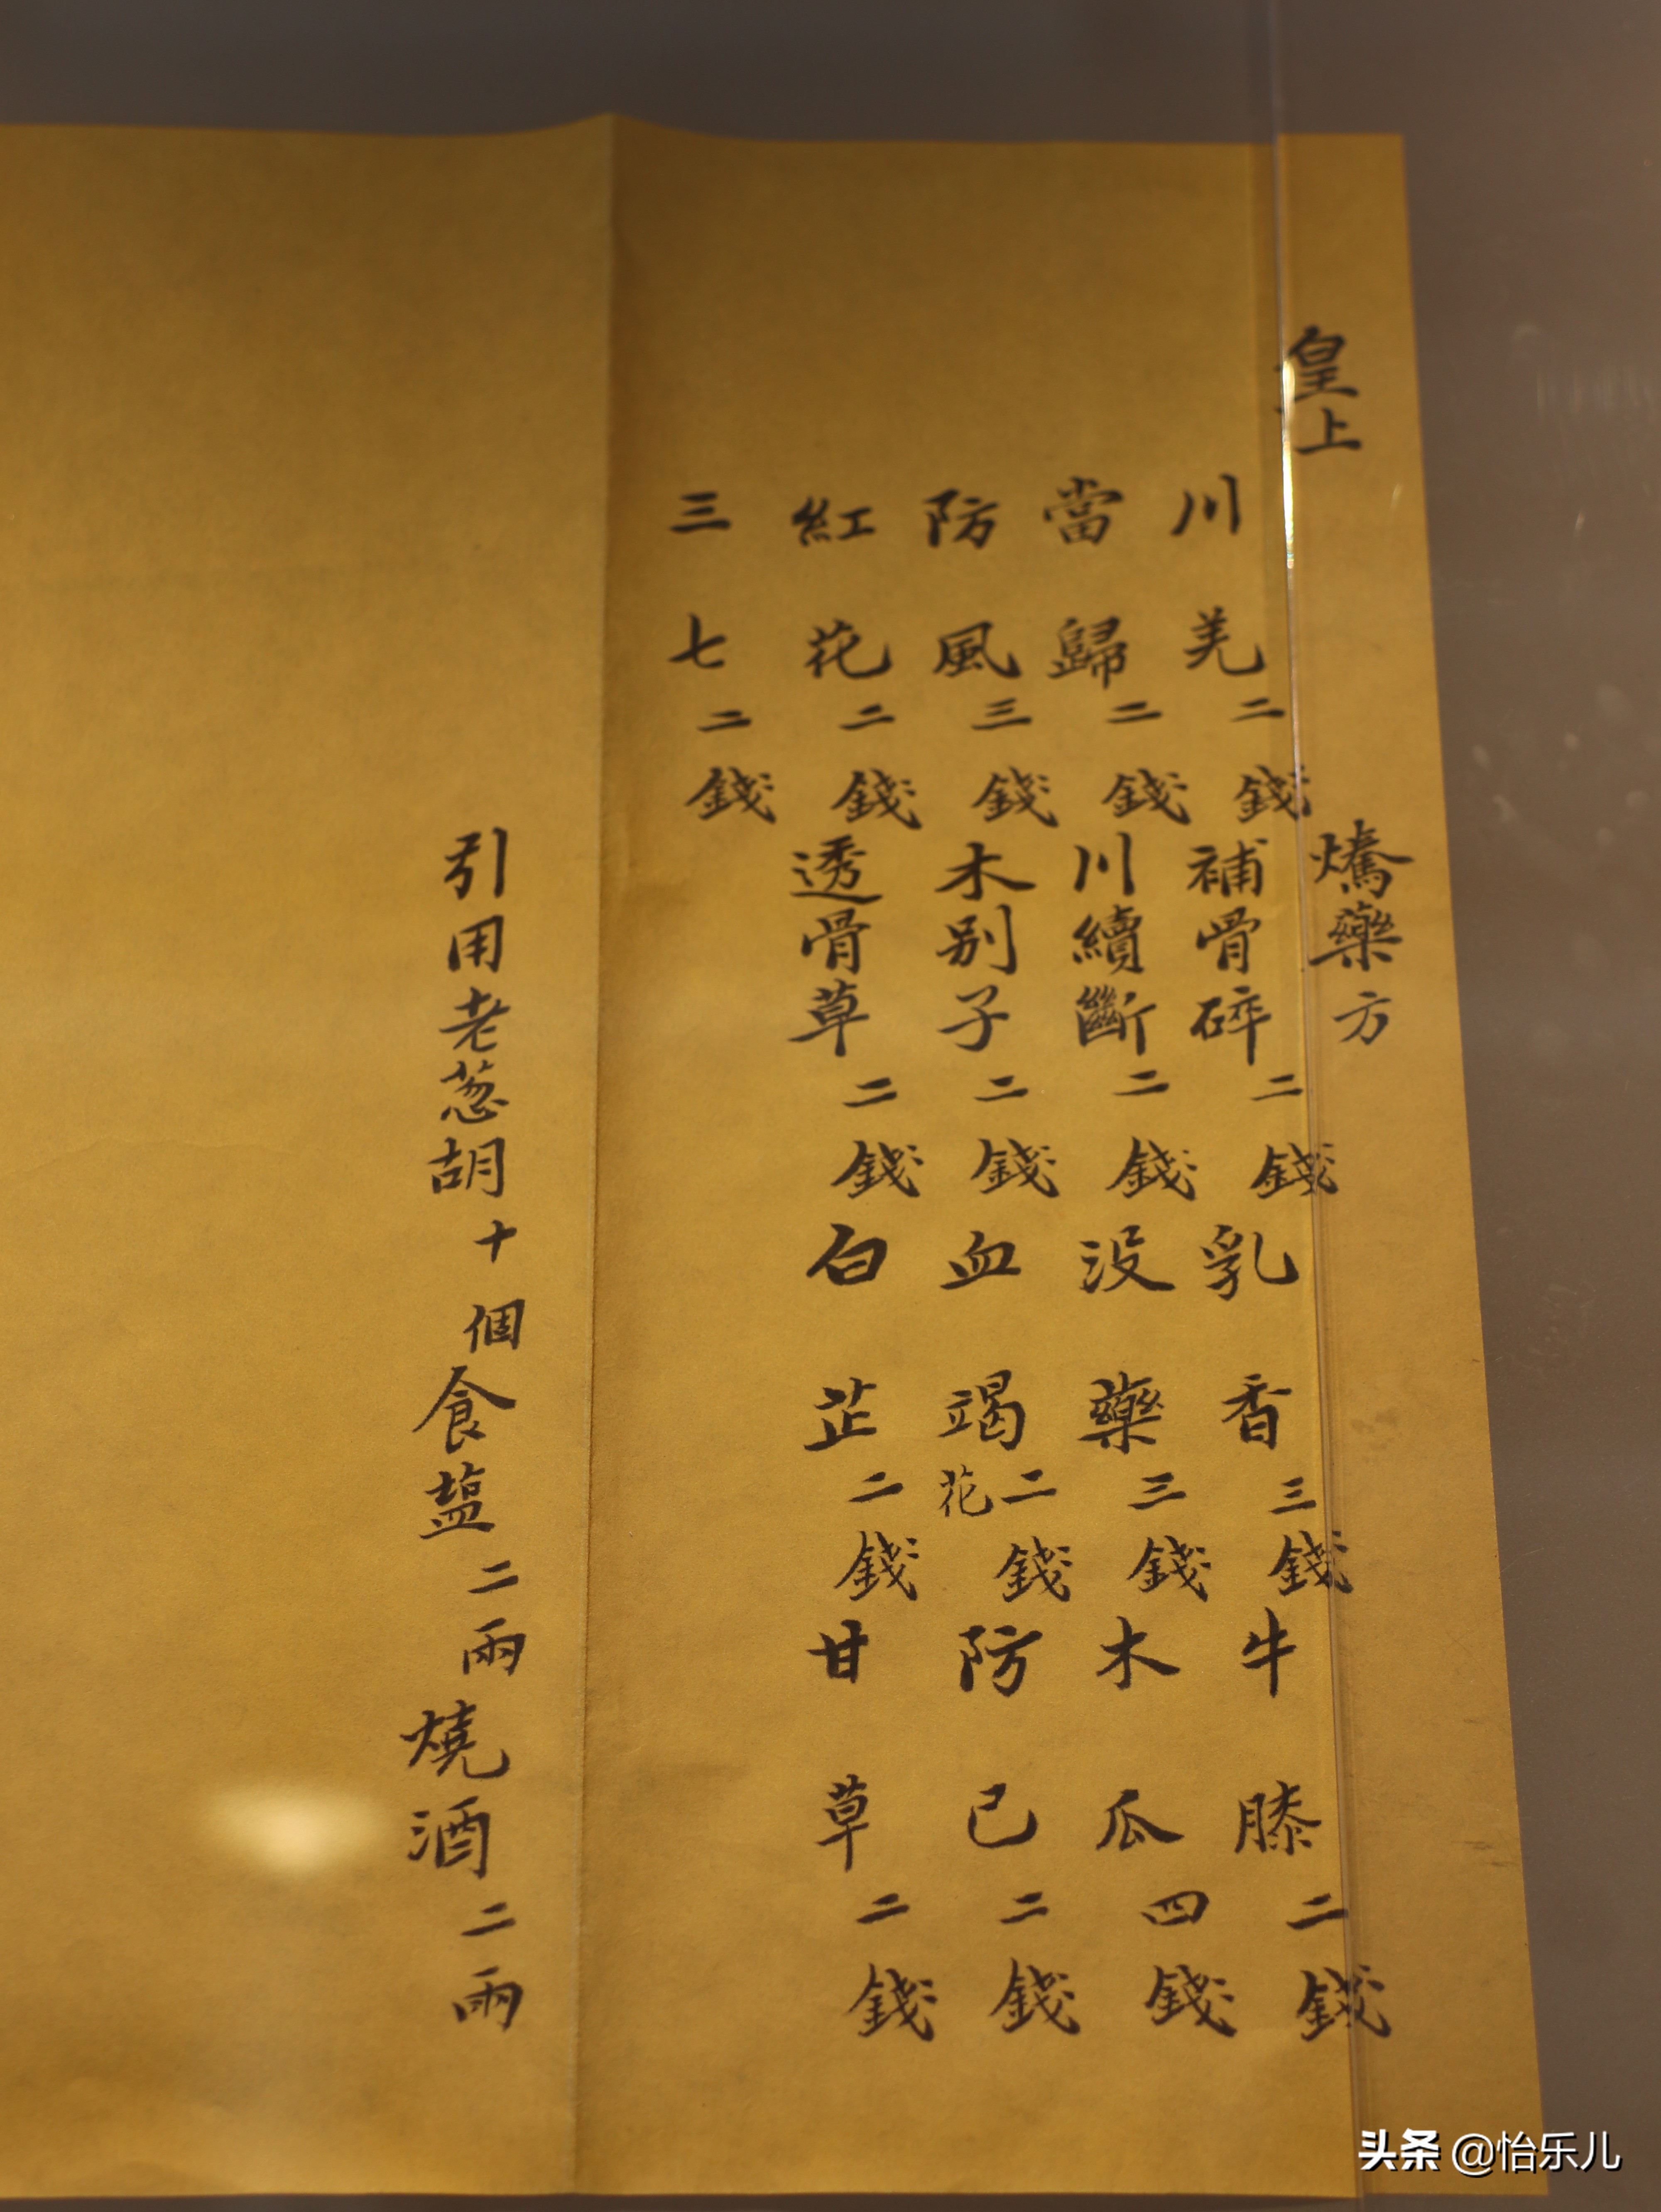 皇上 藥方
川羌二錢 補骨碎二錢 乳香三錢 牛膝二錢
當歸二錢 川續斷二錢 没藥三錢 木瓜四錢
防風三錢 木别子二錢 血竭花二錢 防己二錢
紅花二錢 透骨草二錢 白芷二錢 甘草二錢
三七二錢
引用老葱胡十個食塩二兩燒酒二兩
头条 @怡乐儿